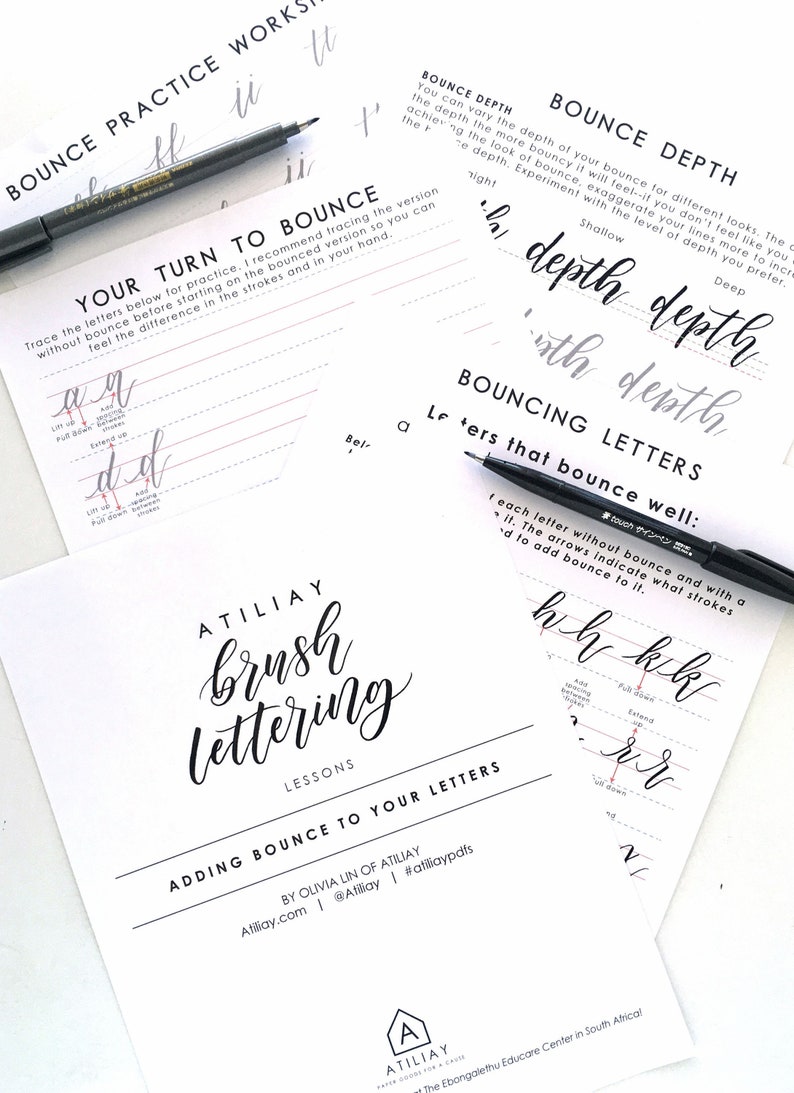 BOUNCE PRACTICE WORKSH
tt
ii
ff
ii
YOUR TURN TO BOUNCE
Trace the letters below for practice. I recommend tracing the version
without bounce before starting on the bounced version so you can
feel the difference in the strokes and in your hand.
a a
Lift up
Pull down
Add
spacing
between
strokes
Extend up
d d
Lift up
Pull down
Add
spacing
between
strokes
BOUNCE DEPTH
BOUNCE DEPTH
You can vary the depth of your bounce for different looks. The d
the depth the more bouncy it will feel--if you don't feel like you
achieving the look of bounce, exaggerate your lines more to incre
the depth. Experiment with the level of depth you prefer.
Shallow
Deep
depth depth
depth
BOUNCING LETTERS
Letters that bounce well:
each letter without bounce and with a
it. The arrows indicate what strokes
to add bounce to it.
touch サインペン
h h k k
Add
spacing
between
strokes
Pull down
Extend
up
r r
Pull down
ATILIAY
brush
lettering
LESSONS
ADDING BOUNCE TO YOUR LETTERS
BY OLIVIA LIN OF ATILIAY
Atiliay.com | @Atiliay | #atiliaypdfs
A
ATILIAY
PAPER GOODS FOR A CAUSE
at The Ebongalethu Educare Center in South Africa!